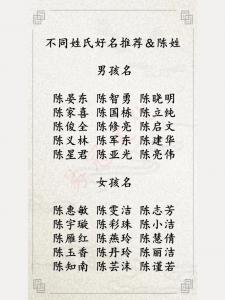 不同姓氏好名推荐&陈姓
男孩名
陈晏东 陈智勇 陈晓明
陈家喜 陈国栋 陈立纯
陈俊全 陈修亮 陈启文
陈义林 陈军东 陈建华
陈星君 陈亚光 陈亮伟
女孩名
陈惠敏 陈雯洁 陈志芳
陈宇璇 陈彩珠 陈小洁
陈雁红 陈燕玲 陈慧倩
陈玉香 陈丹玲 陈丽洁
陈知南 陈芸沫 陈谨若